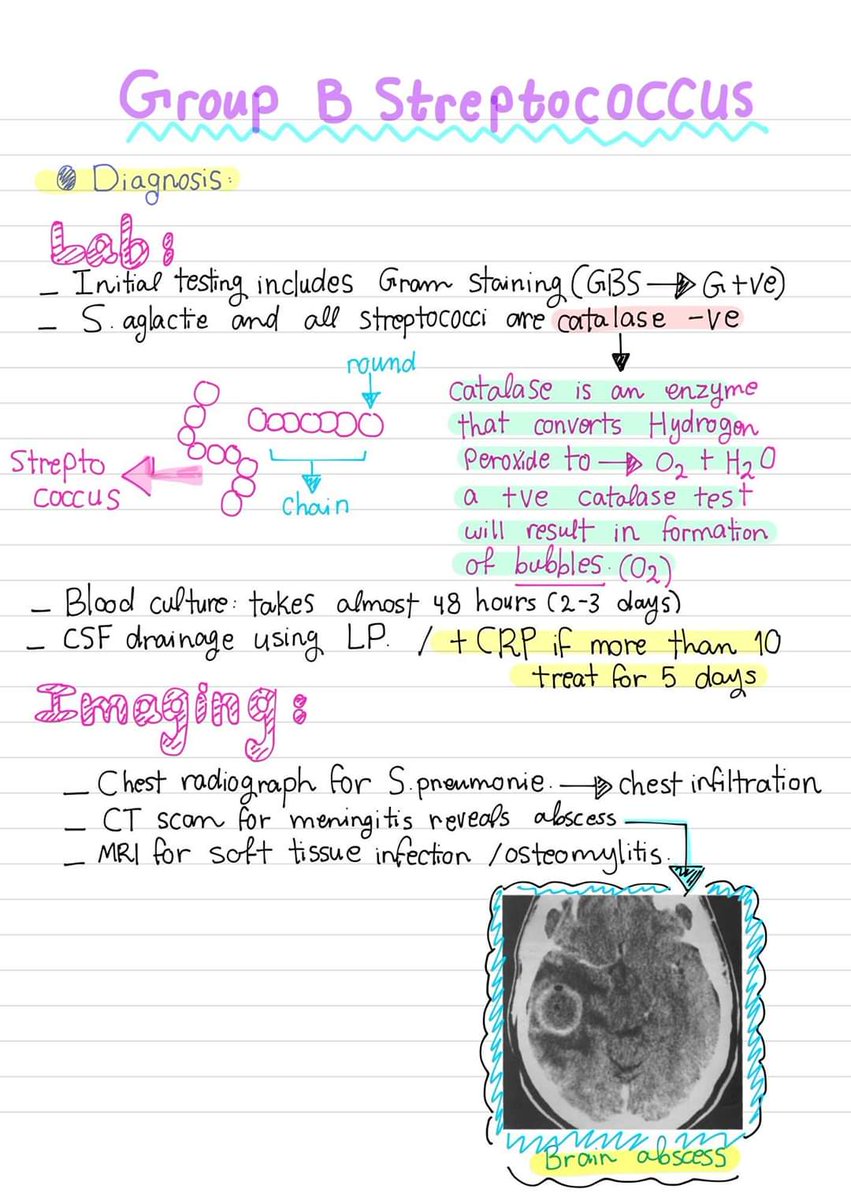 Group B Streptococcus
Diagnosis:
Lab:
– Initial testing includes Gram staining (GBS → G+ve)
– S. aglactie and all streptococci are catalase -ve
round
Strepto
coccus
chain
catalase is an enzyme
that converts Hydrogen
Peroxide to → O₂ + H₂O
a +ve catalase test
will result in formation
of bubbles. (O₂)
– Blood culture: takes almost 48 hours (2-3 days)
– CSF drainage using LP. / + CRP if more than 10
treat for 5 days
Imaging:
– Chest radiograph for S.pneumonie. → chest infiltration
– CT scan for meningitis reveals abscess
– MRI for soft tissue infection /osteomylitis.
Brain abscess